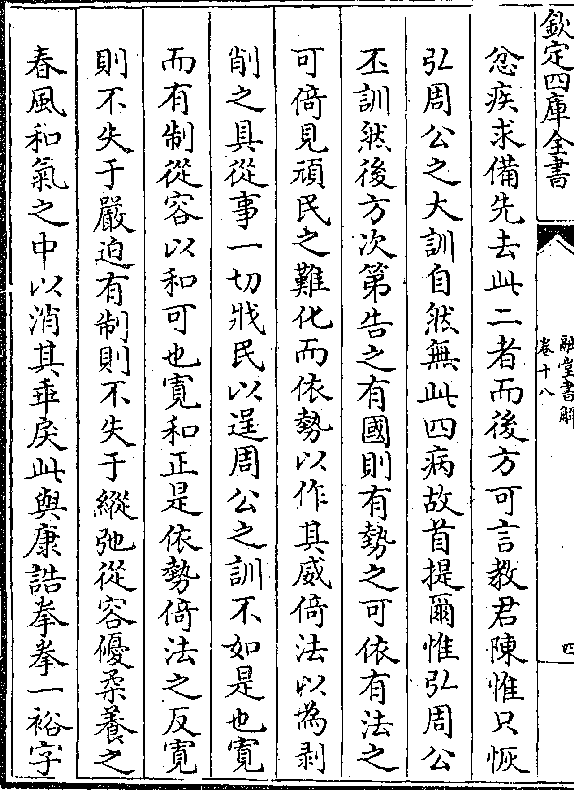 欽定四庫全書
融堂書解
卷十八
四
忿疾求備先去此二者而後方可言教君陳惟只恢
弘周公之大訓自然無此四病故首提爾惟弘周公
丕訓然後方次第告之有國則有勢之可依有法之
可倚見頑民之難化而依勢以作其威倚法以為剥
削之具從事一切戕民以逞周公之訓不如是也寛
而有制從容以和可也寛和正是依勢倚法之反寛
則不失于嚴迫有制則不失于縱弛從容優柔養之
春風和氣之中以消其乖戾此與康誥拳拳一裕字